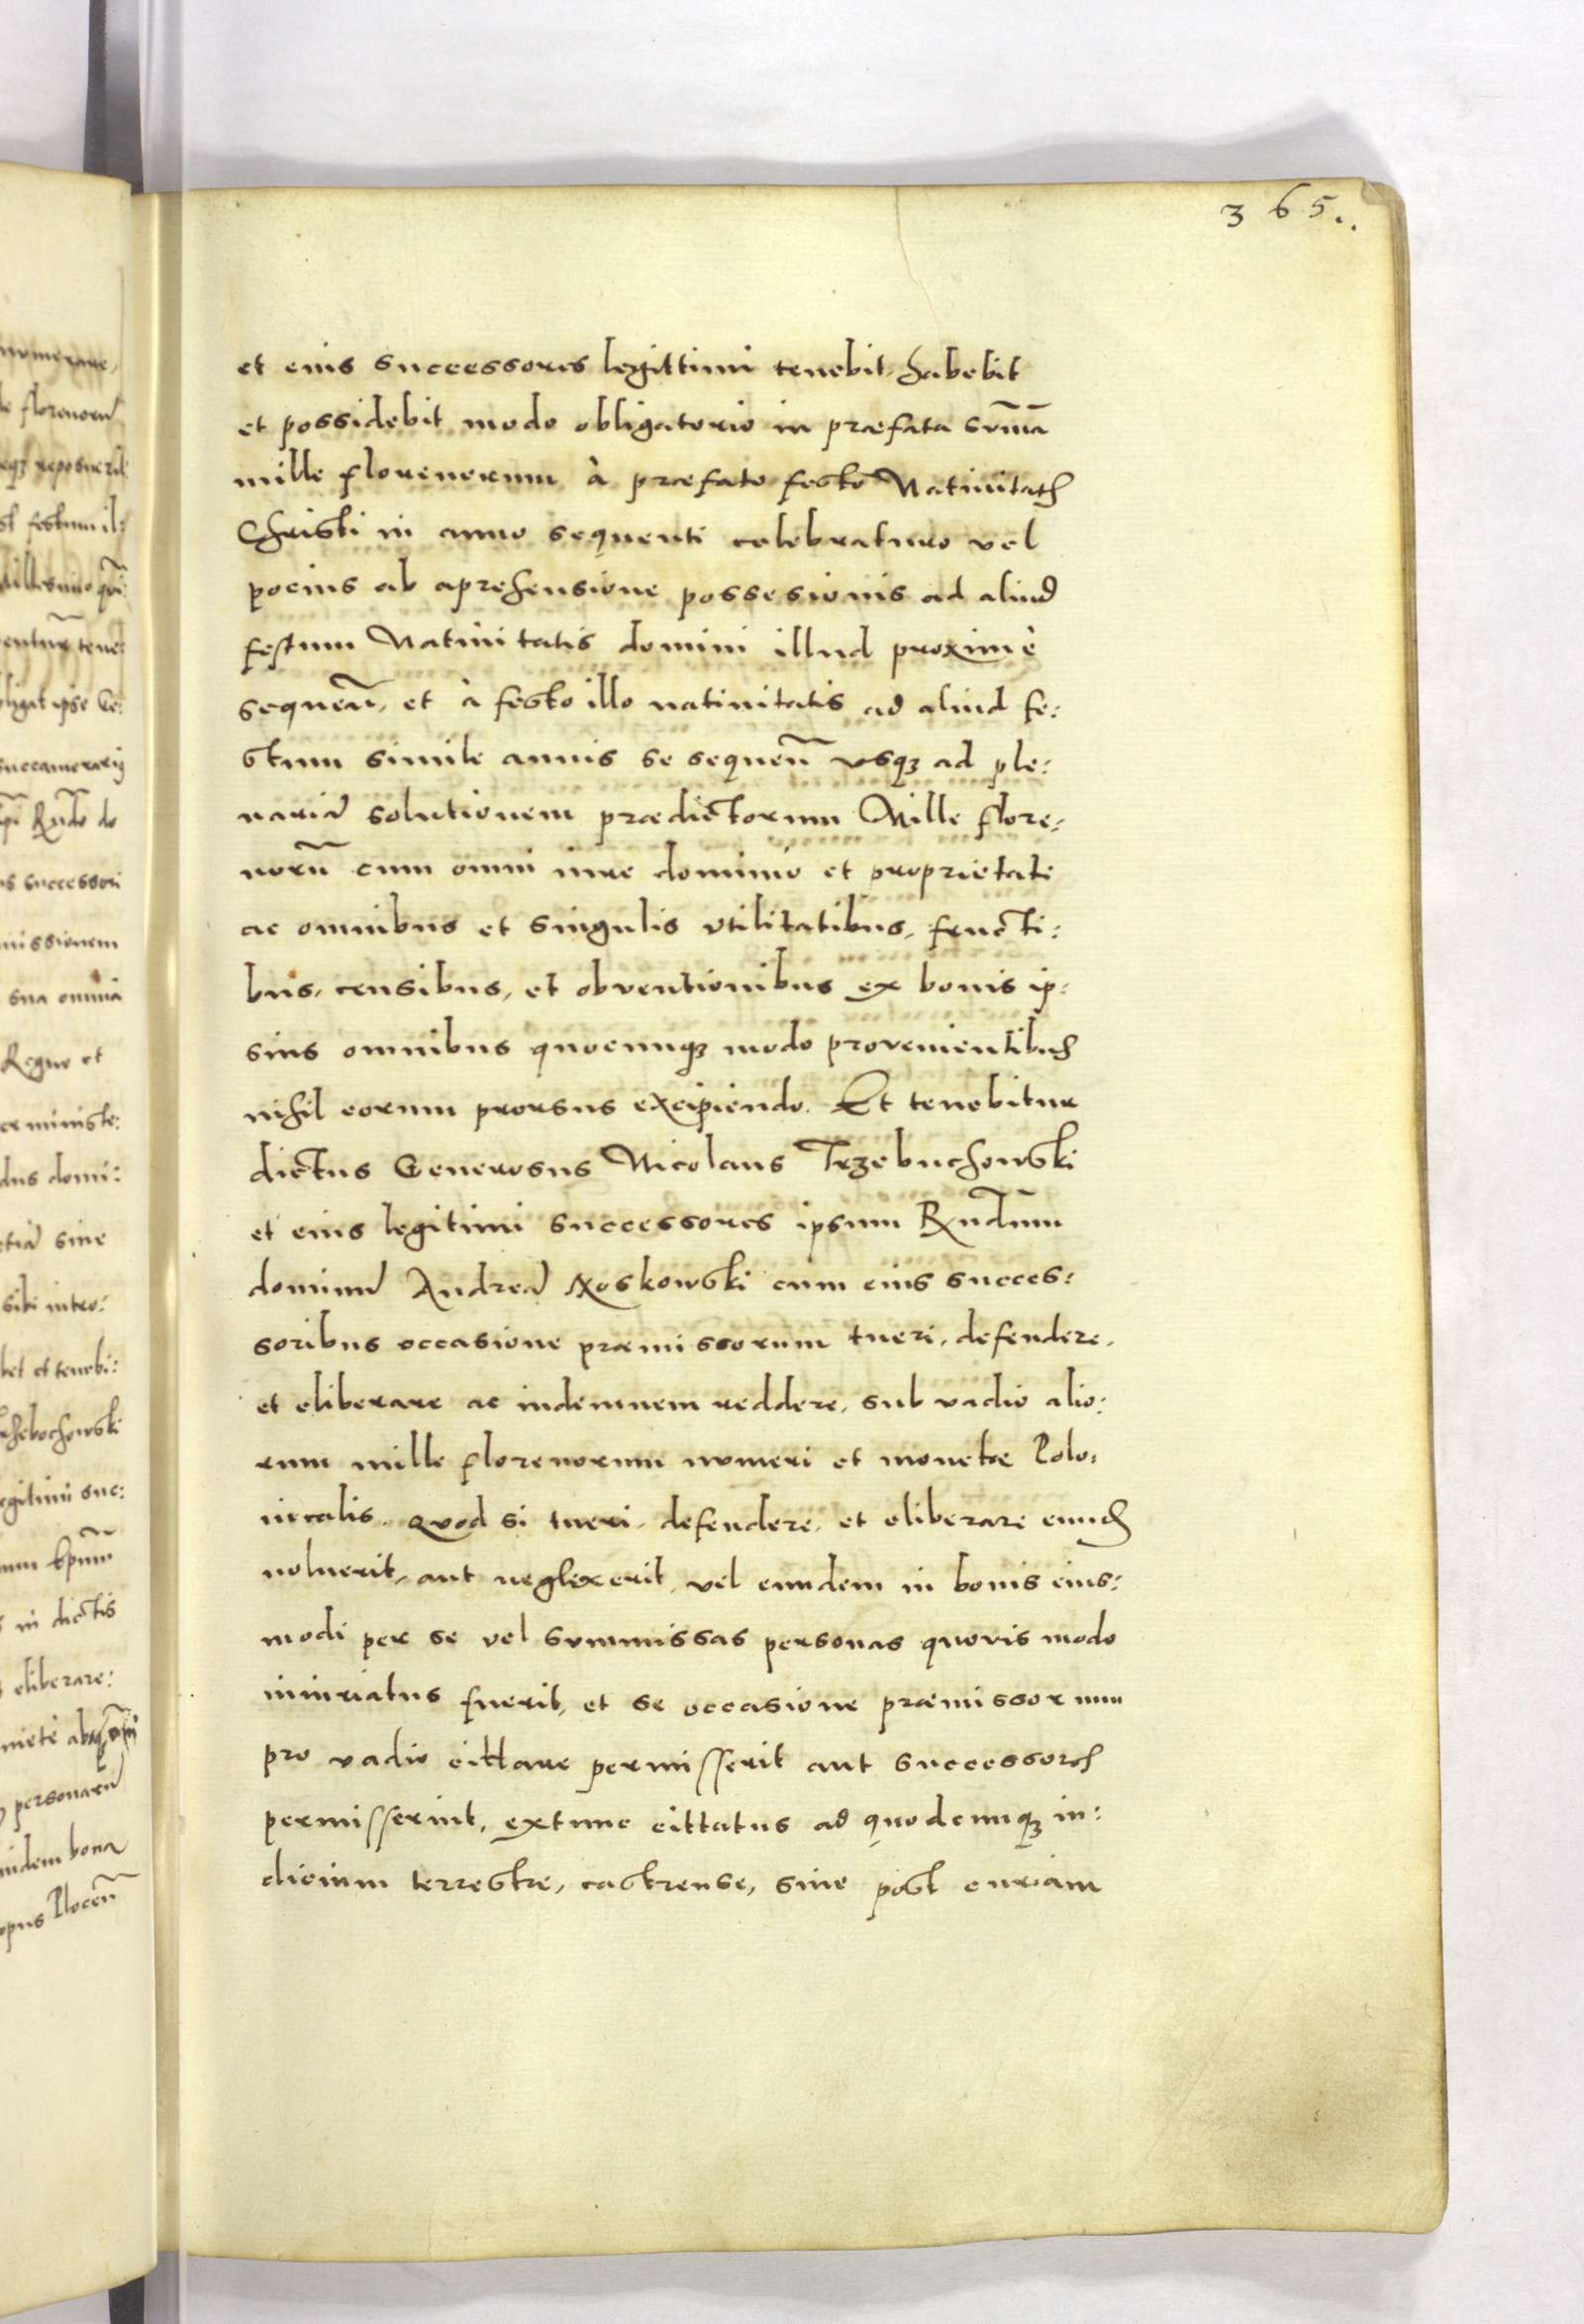 365.
et eius successores legittimi tenebit, habebit
et possidebit modo obligatorio in præfata sum̃a
mille florenorum à præfato festo Natiuitatis
Christi in anno sequenti celebraturo vel
pocius ab aprehensione possesionis ad aliud
festum Natiuitatis domini illud proximè
sequeñ, et à festo illo natiuitatis ad aliud fe:
stum simile annis se sequeñ vsq3 ad ple:
nariã solutionem prædictorum Mille flore:
norũ cum omni iure dominio et proprietate
ac omnibus et singulis vtilitatibus, fructi:
bus, censibus, et obventionibus ex bonis ip:
sius omnibus quocunq3 modo provenientibus
nihil eorum prorsus excipiendo. Et tenebitur
dictus Generosus Nicolaus Trzebuchowski
et eius legitimi successores ipsum Rñdum
dominũ Andreã Noskowski cum eius succes:
soribus occasione præmissorum tueri, defendere,
et eliberare ac indemnem reddere, sub vadio alio:
rum mille florenorum numeri et monetæ Polo:
nicalis. Quod si tueri, defendere, et eliberare eund
noluerit, aut neglexerit, vel eundem in bonis eius:
modi per se vel summissas personas quovis modo
iniuriatus fuerit, et se occasione præmissorum
pro vadio cittare permisserit aut successores
permisserint, extunc cittatus ad quodcunq3 iu:
dicium terrestre, castrense, siue post curiam